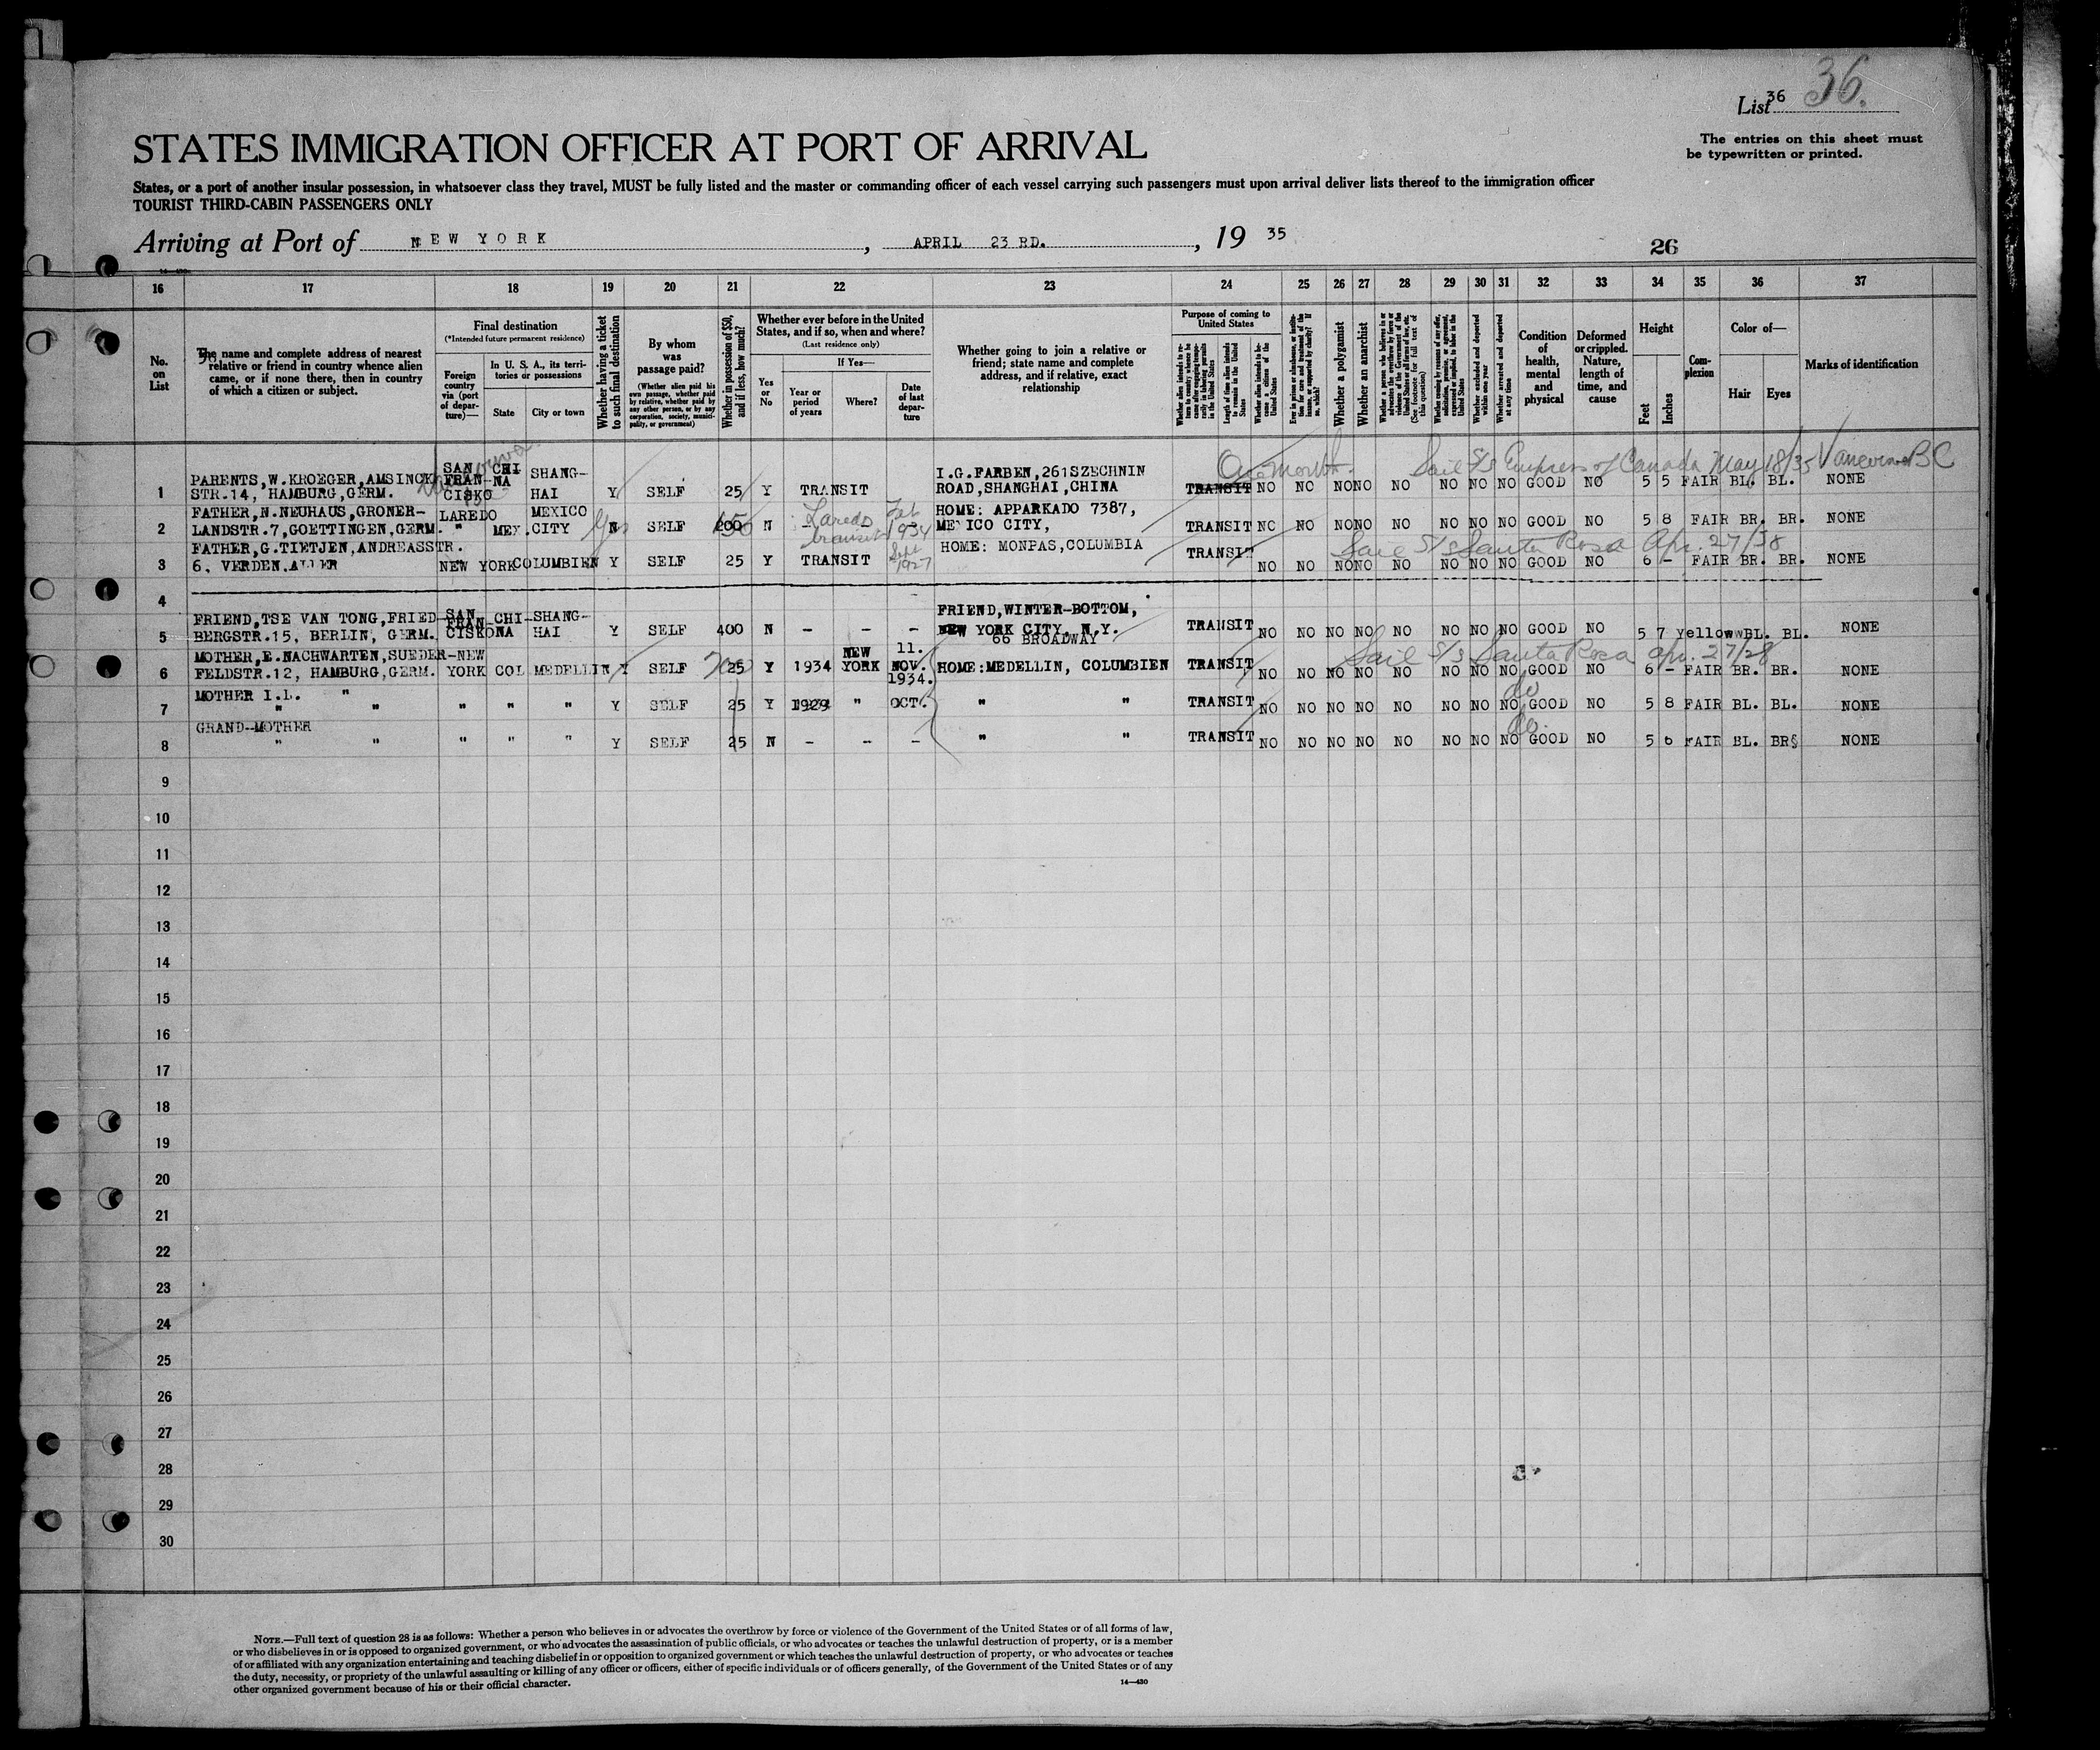 List 36 36.
STATES IMMIGRATION OFFICER AT PORT OF ARRIVAL
The entries on this sheet must
be typewritten or printed.
States, or a port of another insular possession, in whatsoever class they travel, MUST be fully listed and the master or commanding officer of each vessel carrying such passengers must upon arrival deliver lists thereof to the immigration officer
TOURIST THIRD-CABIN PASSENGERS ONLY
Arriving at Port of NEW YORK, APRIL 23 RD., 19 35
26
16 17 18 19 20 21 22 23 24 25 26 27 28 29 30 31 32 33 34 35 36 37
No. on List
The name and complete address of nearest
relative or friend in country whence alien
came, or if none there, then in country
of which a citizen or subject.
Final destination
(*Intended future permanent residence)
Foreign country via (port of departure)—
In U. S. A., its territories or possessions
State City or town
Whether having a ticket to such final destination
By whom was passage paid?
(Whether alien paid his own passage, whether paid by relative, whether paid by any other person, or by any corporation, society, municipality, or government)
Whether in possession of $50, and if less, how much?
Whether ever before in the United States, and if so, when and where?
(Last residence only)
Yes or No
If Yes—
Year or period of years
Where?
Date of last departure
Whether going to join a relative or
friend; state name and complete
address, and if relative, exact
relationship
Purpose of coming to United States
Length of time alien intends to remain in the United States
Whether alien intends to become a citizen of the United States
Whether a polygamist
Whether an anarchist
(See footnote for full text of this question)
Whether excluded and deported within one year
Whether arrested and deported at any time
Condition of health, mental and physical
Deformed or crippled. Nature, length of time, and cause
Height
Feet Inches
Complexion
Color of—
Hair Eyes
Marks of identification
One month. Sail S/s Empress of Canada May 18/35 Vancouver BC
1 PARENTS,W.KROEGER,AMSINCK
STR.14, HAMBURG,GERM. SAN FRAN-CISKO CHI NA SHANG-HAI Y SELF 25 Y TRANSIT I.G.FARBEN,261SZECHNIN
ROAD,SHANGHAI,CHINA TRANSIT NO NO NO NO NO NO NO NO GOOD NO 5 5 FAIR BL. BL. NONE
2 FATHER,N.NEUHAUS,GRONER-
LANDSTR.7,GOETTINGEN,GERM. LAREDO " MEX. MEXICO CITY N Yes SELF 200 N - Laredo transit Feb 1934 HOME: APPARKADO 7387,
MEXICO CITY, TRANSIT NO NO NO NO NO NO NO NO GOOD NO 5 8 FAIR BR. BR. NONE
Sail S/s Santa Rosa Apr. 27/38
3 FATHER,G.TIETJEN,ANDREASSTR.
6, VERDEN.ALLER NEW YORK COLUMBIEN Y SELF 25 Y TRANSIT Sept 1927 HOME: MONPAS,COLUMBIA TRANSIT NO NO NO NO NO NO NO NO GOOD NO 6 - FAIR BR. BR. NONE
4
5 FRIEND,TSE VAN TONG,FRIED-
BERGSTR.15, BERLIN, GERM. SAN FRAN-CISKO CHI-NA SHANG-HAI Y SELF 400 N - - - FRIEND,WINTER-BOTTOM,
NEW YORK CITY, N.Y.
66 BROADWAY TRANSIT NO NO NO NO NO NO NO NO GOOD NO 5 7 yellow BL. BL. NONE
Sail S/s Santa Rosa Apr. 27/28
6 MOTHER,E.NACHWARTEN,SUEDER-
FELDSTR.12, HAMBURG,GERM. NEW YORK COL MEDELLIN Y SELF 25 Y 1934 NEW YORK 11. NOV. 1934. HOME:MEDELLIN, COLUMBIEN TRANSIT NO NO NO NO NO NO NO NO GOOD NO 6 - FAIR BR. BR. NONE
7 MOTHER I.L. "
" " " " " Y SELF 25 Y 1929 " OCT. " " TRANSIT NO NO NO NO NO NO NO NO do GOOD NO 5 8 FAIR BL. BL. NONE
8 GRAND-MOTHER
" " " " " Y SELF 25 N - - - " " TRANSIT NO NO NO NO NO NO NO NO do. GOOD NO 5 6 FAIR BL. BR§ NONE
9
10
11
12
13
14
15
16
17
18
19
20
21
22
23
24
25
26
27
28
29
30
NOTE.—Full text of question 28 is as follows: Whether a person who believes in or advocates the overthrow by force or violence of the Government of the United States or of all forms of law,
or who disbelieves in or is opposed to organized government, or who advocates the assassination of public officials, or who advocates or teaches the unlawful destruction of property, or is a member
of or affiliated with any organization entertaining and teaching disbelief in or opposition to organized government or which teaches the unlawful destruction of property, or who advocates or teaches
the duty, necessity, or propriety of the unlawful assaulting or killing of any officer or officers, either of specific individuals or of officers generally, of the Government of the United States or of any
other organized government because of his or their official character.
14—430